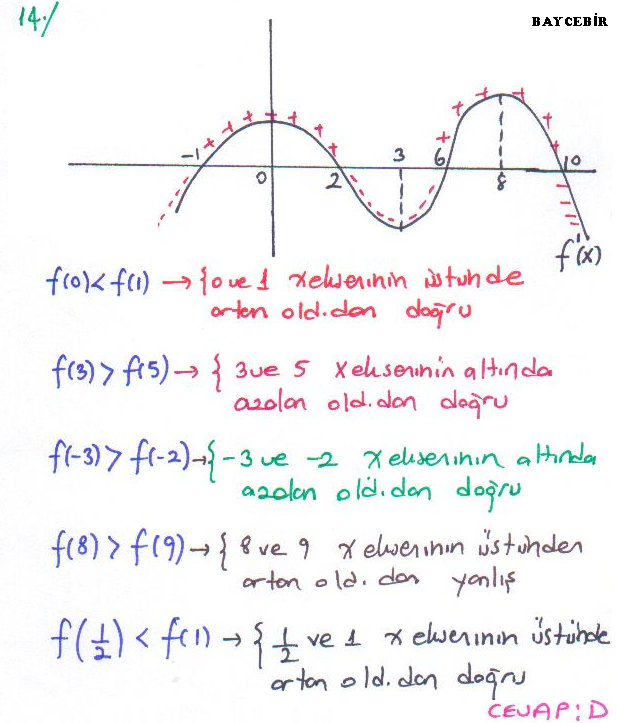 14./
BAYCEBİR
-1 0 2 3 6 8 10
f'(x)
f(0)<f(1) → { 0 ve 1 x ekseninin üstünde
artan old.dan doğru
f(3) > f(5) → { 3 ve 5 x ekseninin altında
azalan old.dan doğru
f(-3) > f(-2) → { -3 ve -2 x ekseninin altında
azalan old.dan doğru
f(8) > f(9) → { 8 ve 9 x ekseninin üstünden
artan old. dan yanlış
f(1/2) < f(1) → { 1/2 ve 1 x ekseninin üstünde
artan old.dan doğru
CEVAP: D